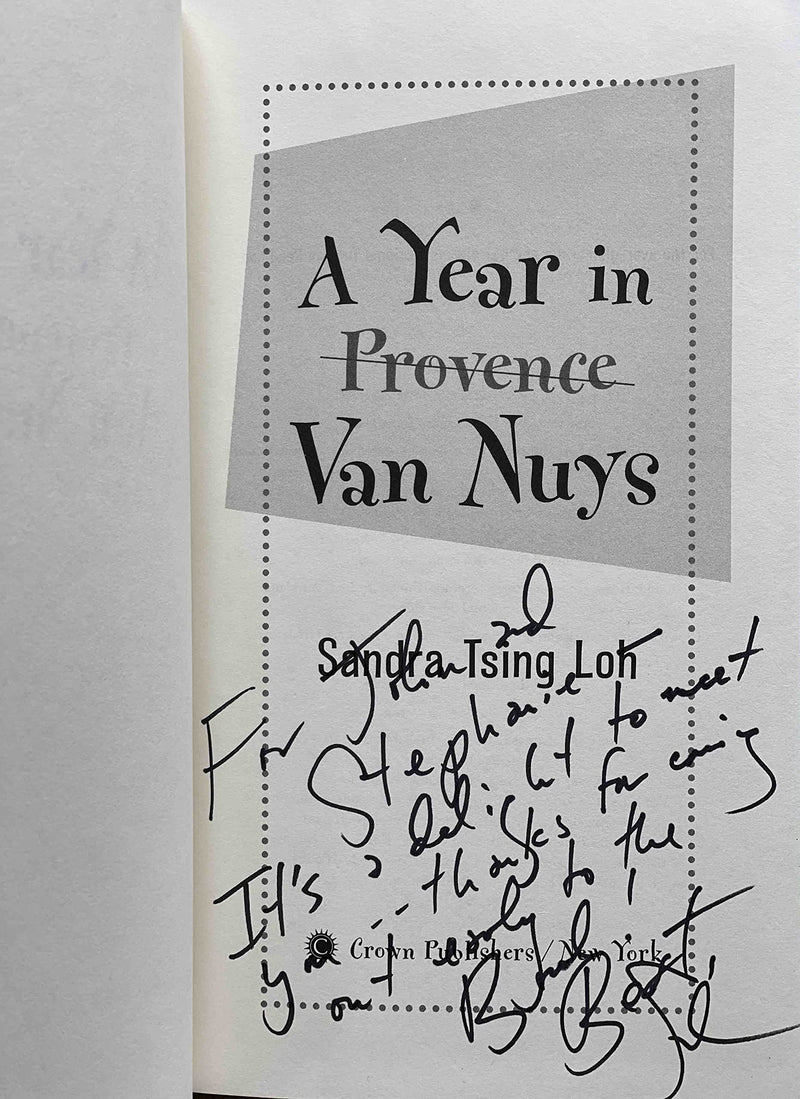 A Year in
Provence
Van Nuys
Sandra Tsing Loh
For John and
Stephanie
It's a delight to meet
you -- thanks for coming
out early to the
Best
Crown Publishers / New York